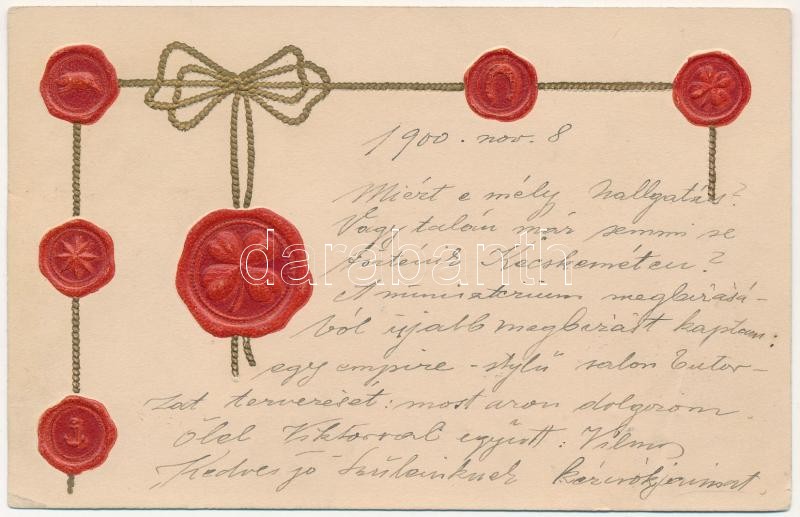 1900. nov. 8
Miért e mély hallgatás?
Vagy talán már semmi se
történik Kecskeméten?
A ministerium megbizásá-
ból ujabb megbizást kaptam:
egy empire-stylü salon butor-
zat tervezését: most azon dolgozom
Ölel Viktorral együtt: Vilmos
Kedves jó Szüleinknek kézcsókjaimat.
darabanth